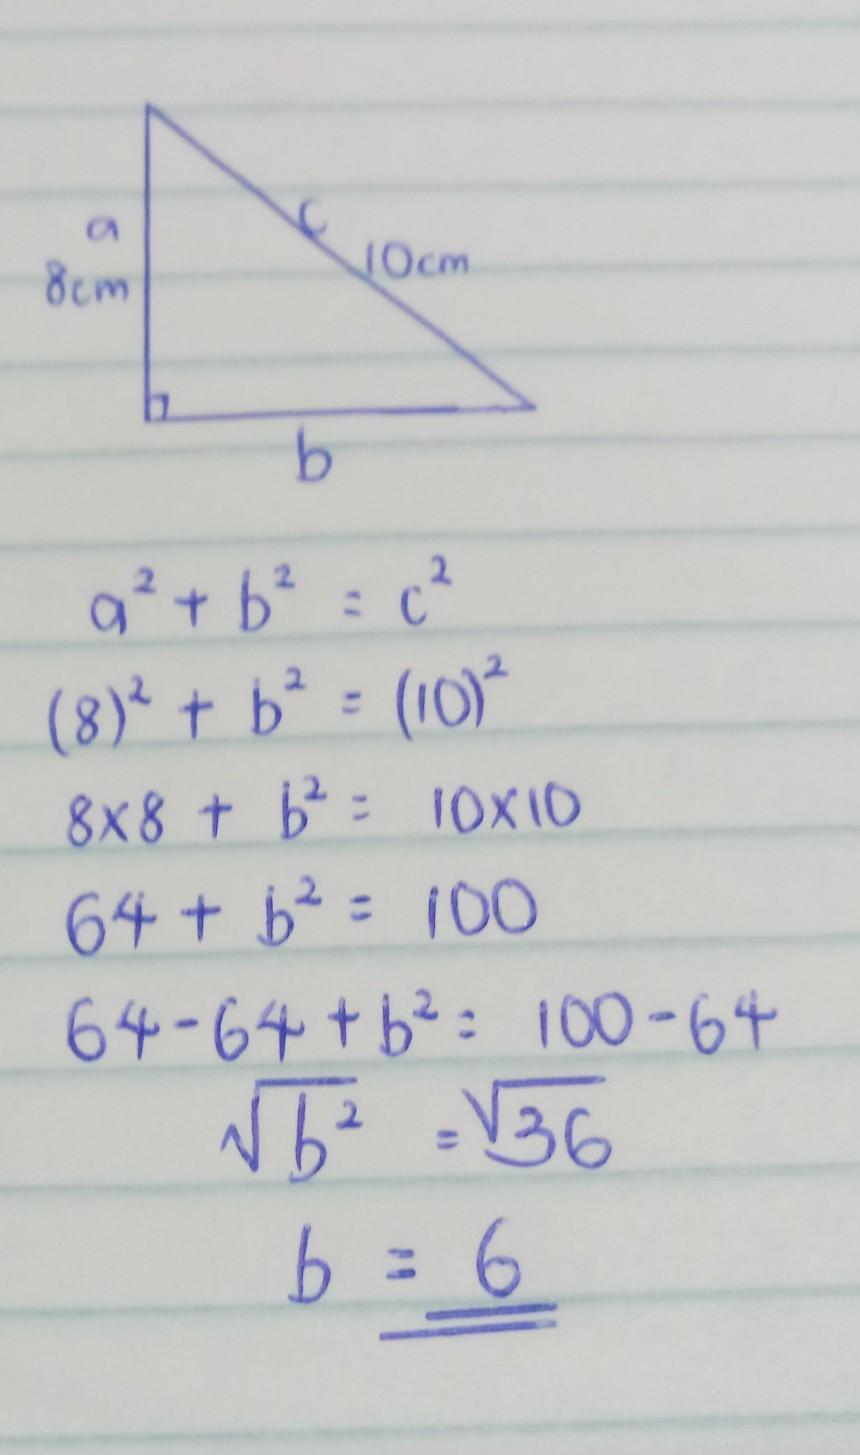 a
c
8cm
10cm
b
a² + b² = c²
(8)² + b² = (10)²
8x8 + b² = 10x10
64 + b² = 100
64-64 + b² = 100-64
√b² = √36
b = 6